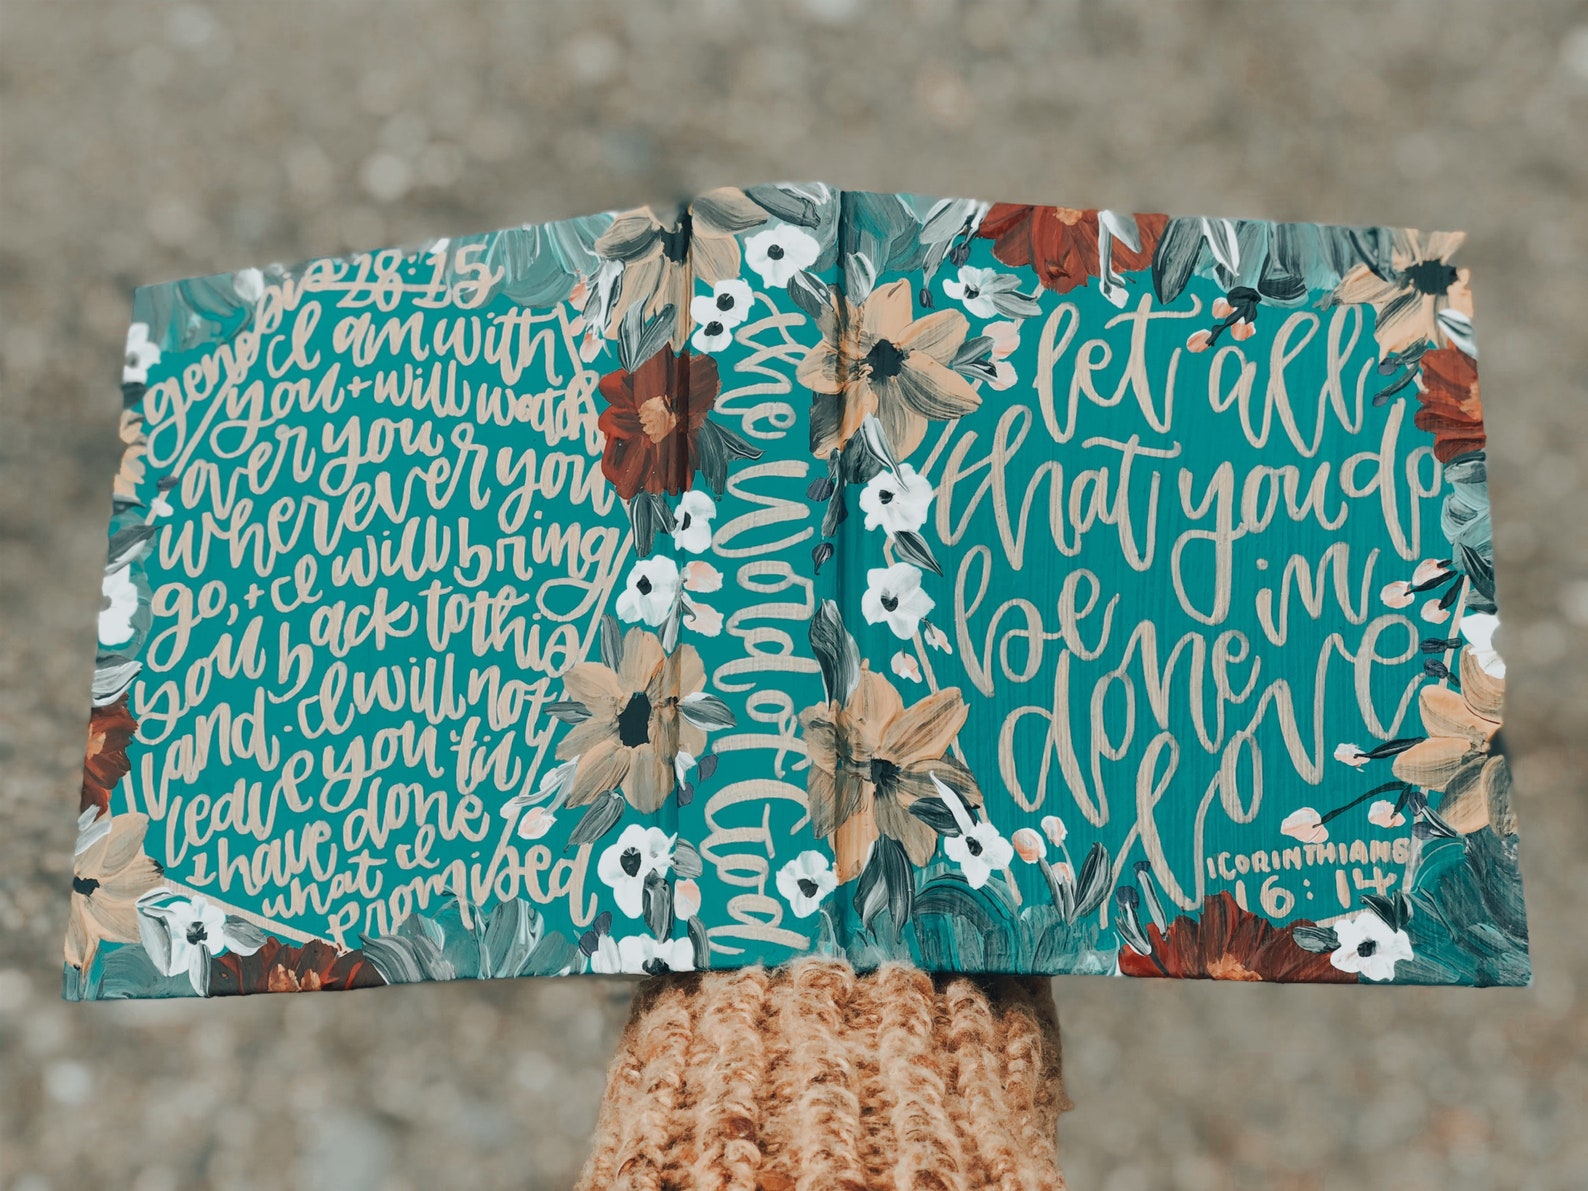 genesis 28:15
I am with
you + will watch
over you
wherever you
go, + I will bring
you back to this
land. I will not
leave you 'til
I have done
what I
promised
the Word of God
let all
that you do
be in
done
love
1 CORINTHIANS
16:14